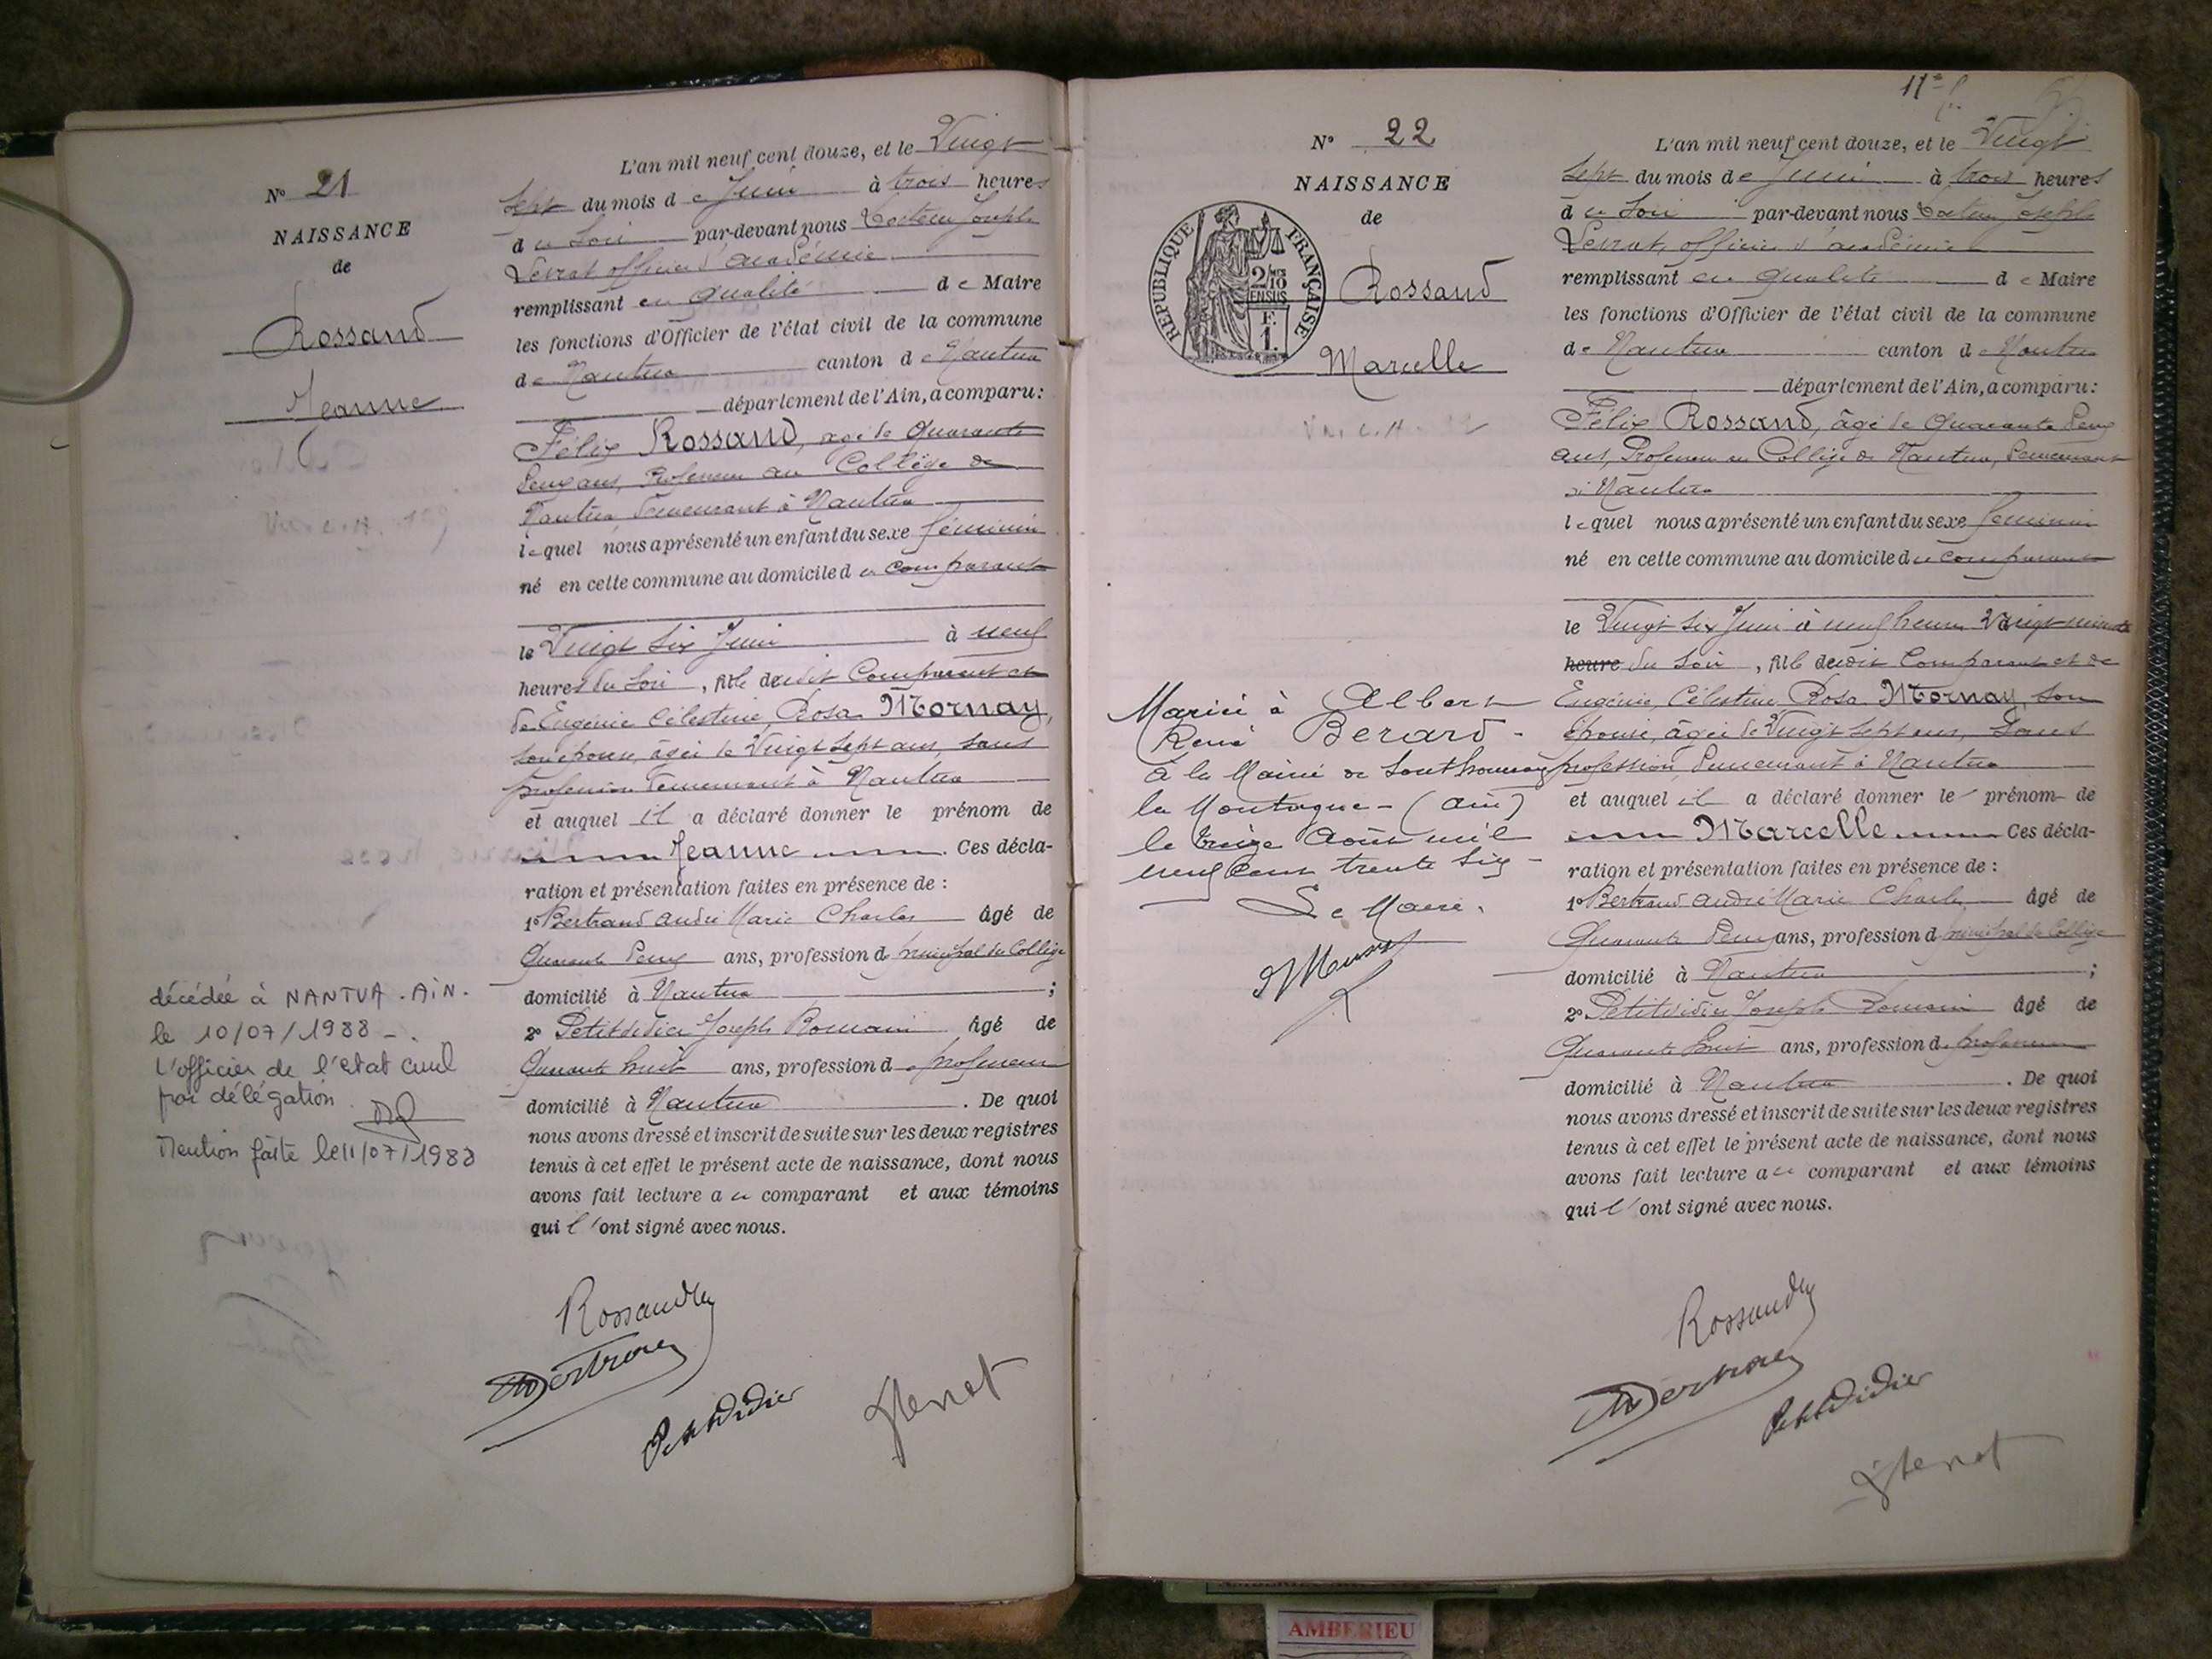 N° 21
NAISSANCE
de
Rossand
Jeanne
décédée à NANTUA. AiN.
le 10/07/1988
L'officier de l'etat civil
par délégation
Mention faite le 11/07/1988
L'an mil neuf cent douze, et le Vingt
sept du mois de Juin à trois heures
du soir par-devant nous Docteur Joseph
officier d'académie
remplissant en qualité de Maire
les fonctions d'Officier de l'état civil de la commune
de Nantua canton de Nantua
département de l'Ain, a comparu :
Félix Rossand, âgé de quarante
deux ans, Professeur au Collège de
Nantua demeurant à Nantua
lequel nous a présenté un enfant du sexe féminin
né en cette commune au domicile du comparant
le Vingt six Juin à neuf
heures du soir, fille dudit Comparant et
de Eugénie Célestine Rosa Mornay,
son épouse, âgée de Vingt sept ans, sans
profession demeurant à Nantua
et auquel il a déclaré donner le prénom de
Jeanne. Ces décla-
ration et présentation faites en présence de :
1° Bertrand André Marie Charles âgé de
Quarante deux ans, profession de principal du Collège
domicilié à Nantua ;
2° Petitdidier Joseph Romain âgé de
Quarante huit ans, profession de professeur
domicilié à Nantua. De quoi
nous avons dressé et inscrit de suite sur les deux registres
tenus à cet effet le présent acte de naissance, dont nous
avons fait lecture au comparant et aux témoins
qui l'ont signé avec nous.
Rossand
Petitdidier
N° 22
NAISSANCE
de
RÉPUBLIQUE FRANÇAISE
2/10
EN SUS
F.
1.
Rossand
Marcelle
Mariée à Albert
René Berard -
à la Mairie de
la Montagne - (Ain)
le treize Août mil
neuf cent trente six -
Le Maire.
11e f.
L'an mil neuf cent douze, et le Vingt
sept du mois de Juin à trois heures
du soir par-devant nous Docteur Joseph
officier d'académie
remplissant en qualité de Maire
les fonctions d'Officier de l'état civil de la commune
de Nantua canton de Nantua
département de l'Ain, a comparu :
Félix Rossand, âgé de Quarante deux
ans, Professeur au Collège de Nantua, demeurant
à Nantua
lequel nous a présenté un enfant du sexe féminin
né en cette commune au domicile du comparant
le Vingt six Juin à neuf heures Vingt minutes
heure du soir, fille dudit Comparant et de
Eugénie, Célestine Rosa Mornay, son
épouse, âgée de Vingt sept ans, sans
profession, demeurant à Nantua
et auquel il a déclaré donner le prénom de
Marcelle. Ces décla-
ration et présentation faites en présence de :
1° Bertrand André Marie Charles âgé de
Quarante deux ans, profession de principal du Collège
domicilié à Nantua ;
2° Petitdidier Joseph Romain âgé de
Quarante huit ans, profession de professeur
domicilié à Nantua. De quoi
nous avons dressé et inscrit de suite sur les deux registres
tenus à cet effet le présent acte de naissance, dont nous
avons fait lecture au comparant et aux témoins
qui l'ont signé avec nous.
Rossand
Petitdidier
AMBERIEU